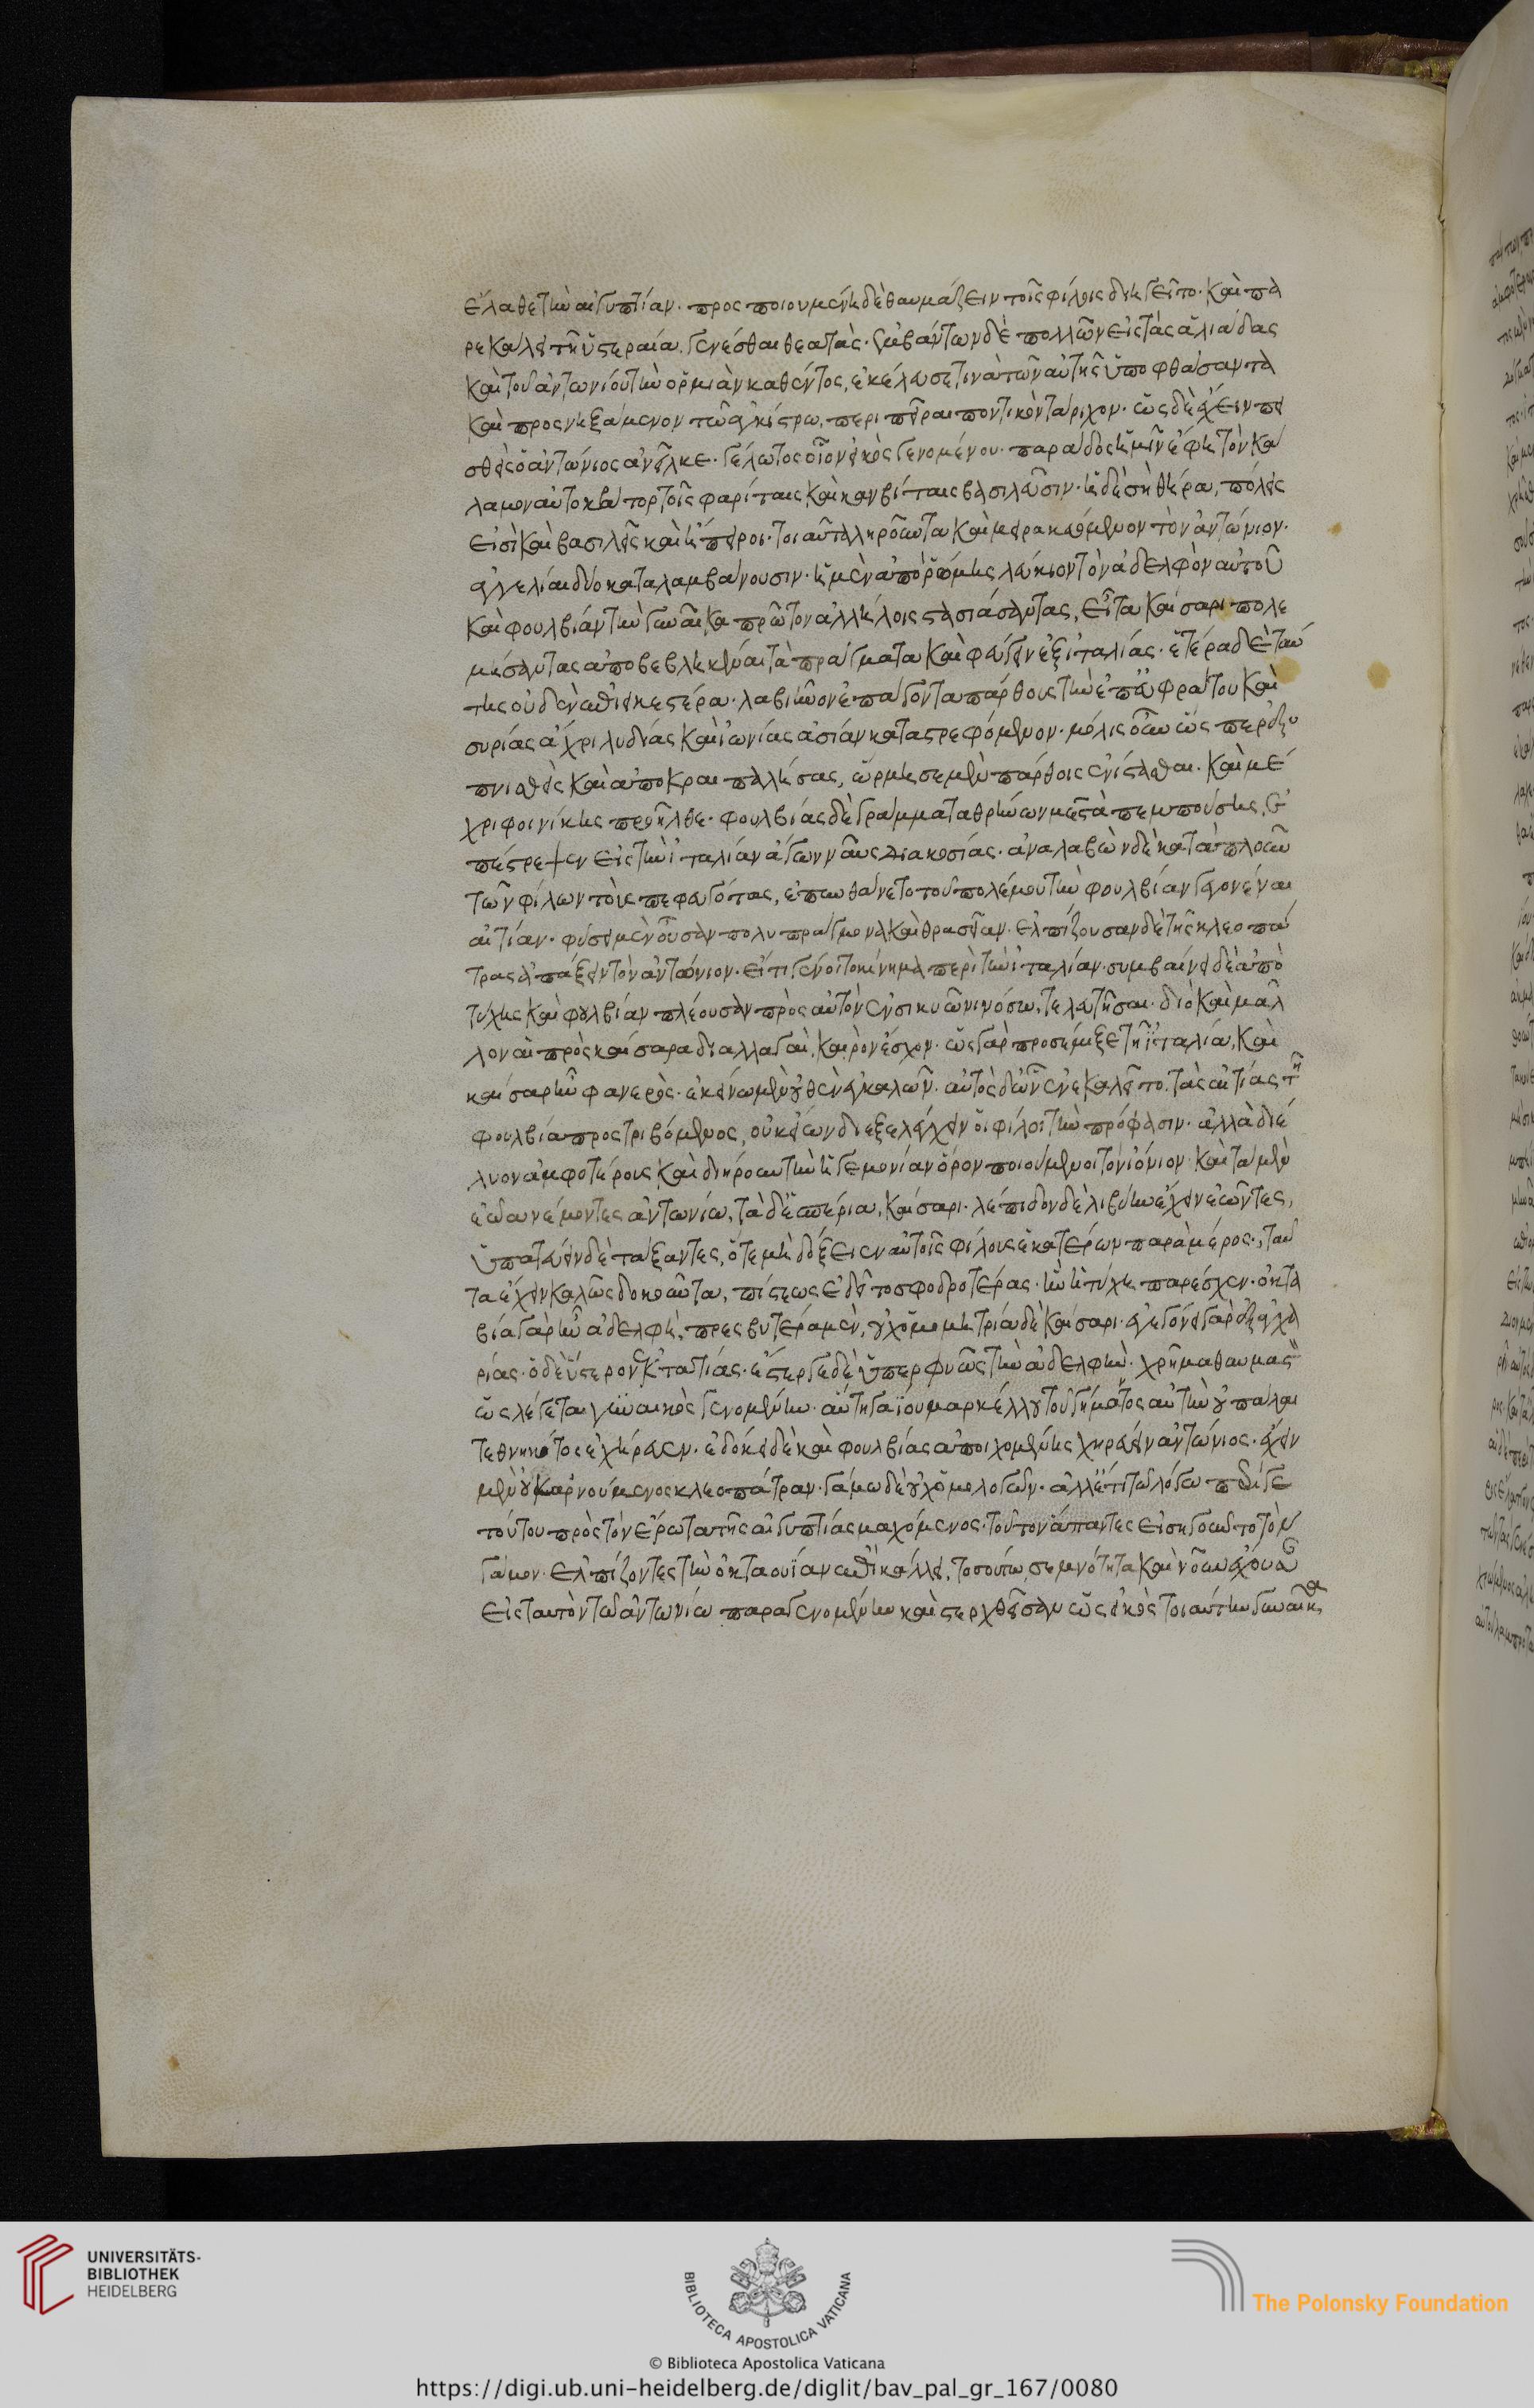 ἔλαθε τὴν αἰγυπτίαν· προσποιουμένη δὲ θαυμάζειν τοῖς φίλοις διηγεῖτο· καὶ πα
ρεκάλει τῇ ὑστεραίᾳ γενέσθαι θεατάς· ἐμβάντων δὲ πολλῶν εἰς τὰς ἁλιάδας
καὶ τοῦ ἀντωνίου τὴν ὁρμιὰν καθέντος, ἐκέλευσε τινὰ τῶν αὐτῆς ὑποφθάσαντα
καὶ προσνηξάμενον τῷ ἀγκίστρῳ, περιπεῖραι ποντικὸν τάριχον· ὡς δὲ ἔχειν πει
σθεὶς ὁ ἀντώνιος ἀνεῖλκε· γέλωτος οἷον εἰκὸς γενομένου· παράδος ἡμῖν ἔφη τὸν κά
λαμον αὐτοκράτορ τοῖς φαρίταις καὶ κανωβίταις βασιλεῦσιν· ἡ δὲ σὴ θήρα, πόλεις
εἰσὶ καὶ βασιλεῖς καὶ ἤπειροι· τοιαῦτα ληροῦντα καὶ μειρακιευόμενον τὸν ἀντώνιον·
ἀγγελίαι δύο καταλαμβάνουσιν· ἡ μὲν ἀπὸ ῥώμης λεύκιον τὸν ἀδελφὸν αὐτοῦ
καὶ φουλβίαν τὴν γυναῖκα πρῶτον ἀλλήλοις στασιάσαντας, εἶτα καίσαρι πολε
μήσαντας ἀποβεβληκέναι τὰ πράγματα καὶ φεύγειν ἐξ ἰταλίας· ἑτέρα δὲ ταύ
της οὐδὲν ἐπιεικεστέρα· λαβιηνὸν ἐπάγοντα πάρθους τὴν ἐπ' εὐφράτου καὶ
συρίας ἄχρι λυδίας καὶ ἰωνίας ἀσίαν καταστρεφόμενον· μόλις οὖν ὥσπερ ἐξυ
πνισθεὶς καὶ ἀποκραιπαλήσας, ὥρμησε μὲν πάρθοις ἐνίστασθαι· καὶ μέ
χρι φοινίκης προῆλθε· φουλβίας δὲ γράμματα θρήνων μεστὰ πεμπούσης, ἐ
πέστρεψεν εἰς τὴν ἰταλίαν ἄγων ναῦς διακοσίας· ἀναλαβὼν δὲ κατὰ πλοῦν
τῶν φίλων τοὺς πεφευγότας, ἐπυνθάνετο τοῦ πολέμου τὴν φουλβίαν γεγονέναι
αἰτίαν· φύσει μὲν οὖσαν πολυπράγμονα καὶ θρασεῖαν· ἐλπίζουσαν δὲ τῆς κλεοπά
τρας ἀπάξειν τὸν ἀντώνιον· εἴ τι γένοιτο κίνημα περὶ τὴν ἰταλίαν· συμβαίνει δὲ ἀπὸ
τύχης καὶ φουλβίαν πλέουσαν πρὸς αὐτὸν ἐν σικυῶνι νόσῳ, τελευτῆσαι· διὸ καὶ μᾶλ
λον αἱ πρὸς καίσαρα διαλλαγαὶ, καιρὸν ἔσχον· ὡς γὰρ προσέμιξε τῇ ἰταλίᾳ, καὶ
καίσαρ ἦν φανερὸς· ἐκείνῳ μὲν οὐθὲν ἐγκαλῶν· αὐτὸς δ' ὧν ἐνεκαλεῖτο τὰς αἰτίας τῇ
φουλβίᾳ προστριβόμενος, οὐκ εἴων διεξελέγχειν οἱ φίλοι τὴν πρόφασιν· ἀλλὰ διέ
λυον ἀμφοτέρους καὶ διῄρουν τὴν ἡγεμονίαν ὅρον ποιούμενοι τὸν ἰόνιον· καὶ τὰ μὲν
ἑῷα νέμοντες ἀντωνίῳ, τὰ δ' ἑσπέρια, καίσαρι· λέπιδον δὲ λιβύην ἔχειν ἐῶντες,
ὑπατεύειν δὲ τάξαντες, ὅτε μὴ δόξειεν αὐτοῖς φίλους ἑκατέρων παρὰ μέρος· ταῦ
τα ἔχειν καλῶς δοκοῦντα, πίστεως ἐδεῖτο σφοδροτέρας· ἣν ἡ τύχη παρέσχεν· ὀκτα
βία γὰρ ἦν ἀδελφή, πρεσβυτέρα μὲν, οὐχ ὁμομητρία δὲ καίσαρι· ἐγεγόνει γὰρ ἐξ ἀγχα
ρίας· ὁ δὲ ὕστερον ἐκ τατίας· ἔστεργε δὲ ὑπερφυῶς τὴν ἀδελφήν· χρῆμα θαυμαστὸν
ὡς λέγεται γυναικὸς γενομένην· αὕτη γαΐου μαρκέλλου τοῦ γήμαντος αὐτὴν οὐ πάλαι
τεθνηκότος ἐχήρευεν· ἐδόκει δὲ καὶ φουλβίας ἀποιχομένης χηρεύειν ἀντώνιος· ἔχειν
μὲν οὐκ ἀρνούμενος κλεοπάτραν· γάμῳ δὲ οὐχ ὁμολογῶν· ἀλλ' ἔτι τῷ λόγῳ περί γε
τούτου πρὸς τὸν ἔρωτα τῆς αἰγυπτίας μαχόμενος· τοῦτον ἅπαντες εἰσηγοῦντο τὸν
γάμον· ἐλπίζοντες τὴν ὀκταουΐαν ἐπὶ κάλλει, τοσούτῳ σεμνότητα καὶ νοῦν ἔχουσαν
εἰς ταυτὸν τῷ ἀντωνίῳ παραγενομένην καὶ στερχθεῖσαν ὡς εἰκὸς τοιαύτην γυναῖκα,
UNIVERSITÄTS-
BIBLIOTHEK
HEIDELBERG
BIBLIOTECA APOSTOLICA VATICANA
The Polonsky Foundation
© Biblioteca Apostolica Vaticana
https://digi.ub.uni-heidelberg.de/diglit/bav_pal_gr_167/0080